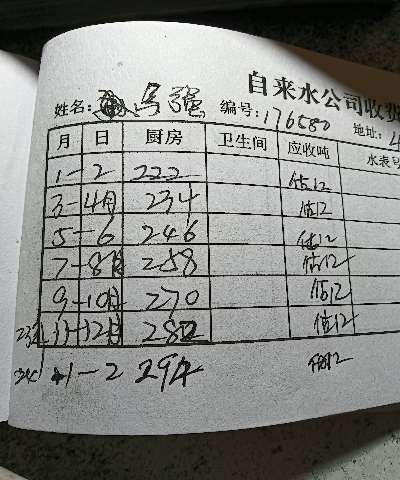 自来水公司收费
姓名: 马强 编号: 176580 地址:
月 日 厨房 卫生间 应收吨 水表号
1-2 222 估12
3-4月 234 估12
5-6 246 估12
7-8月 258 估12
9-10月 270 估12
11-12月 282 估12
1-2 294 估12